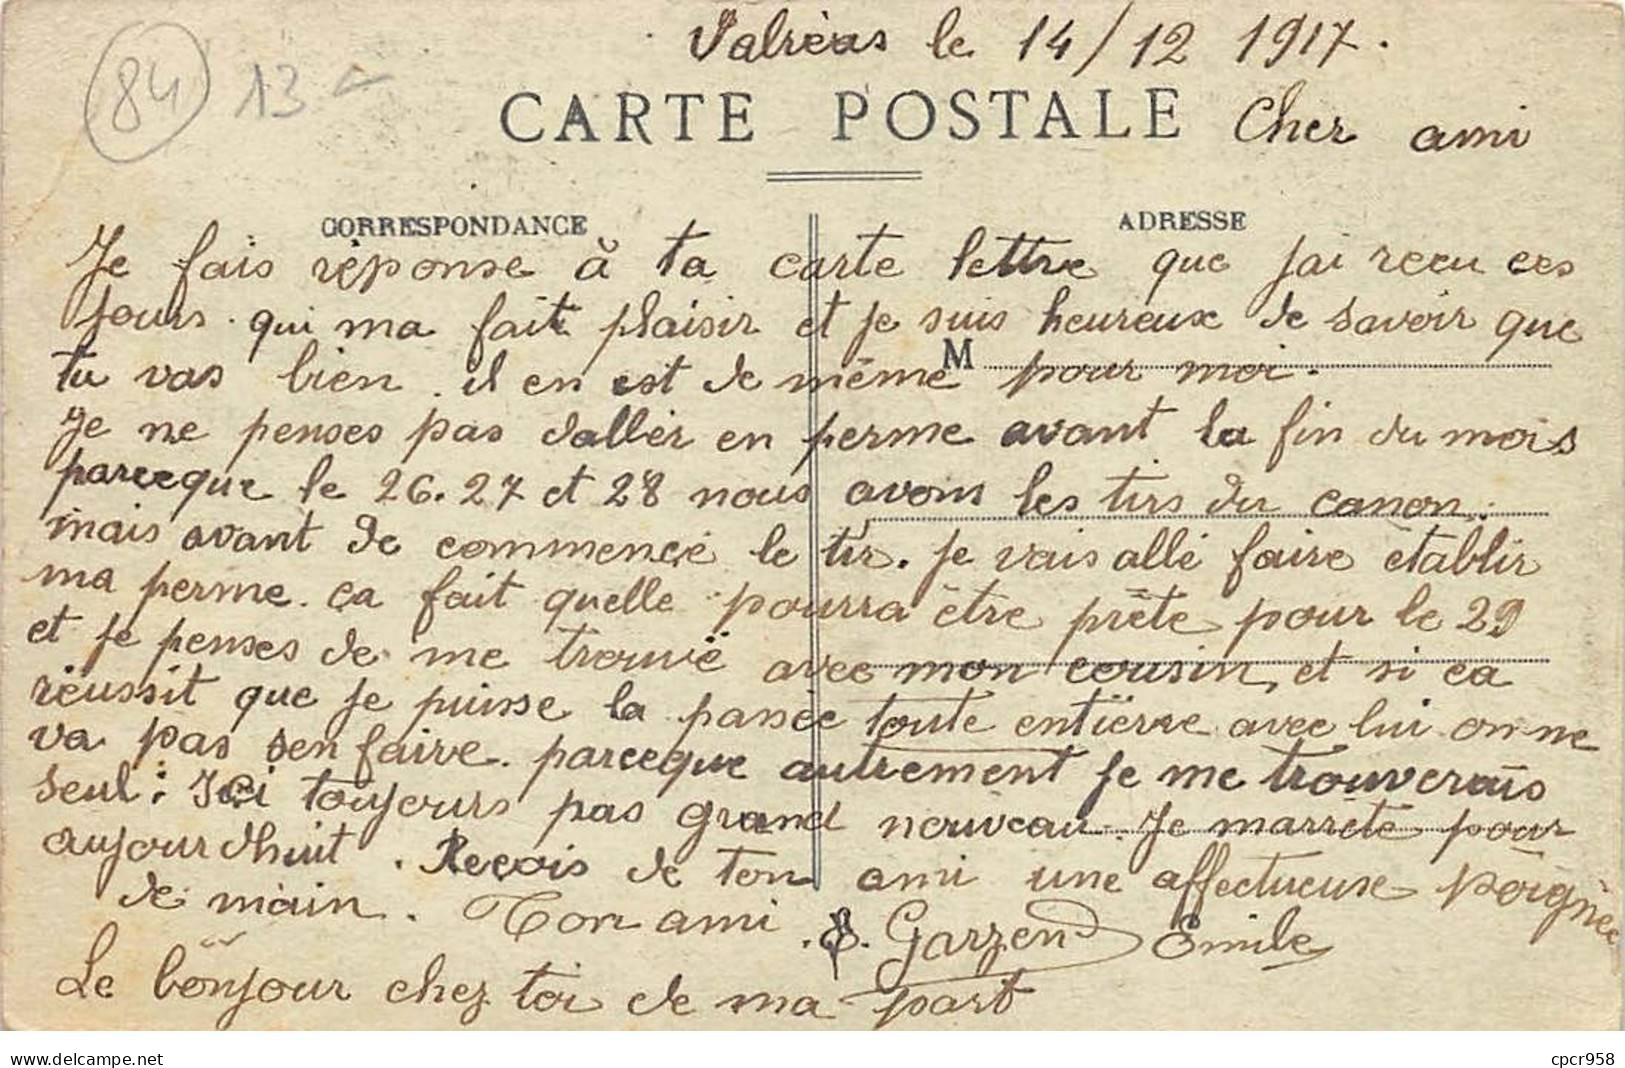 Valréas le 14/12 1917.
84 13
CARTE POSTALE Cher ami
CORRESPONDANCE ADRESSE
Je fais réponse à ta carte lettre que jai recu ces
jours. qui ma fait plaisir et je suis heureux de savoir que
M
tu vas bien. il en est de même pour moi.
Je ne penses pas daller en perme avant la fin du mois
parceque le 26.27 et 28 nous avons les tirs du canon.
mais avant de commencé le tir. je vais allé faire établir
ma perme. ca fait quelle pourra être prête pour le 29
et je penses de me trouvé avec mon cousin, et si ca
réussit que je puisse la passée toute entière avec lui on ne
va pas sen faire. parceque autrement je me trouverais
seul: Ici toujours pas grand nouveau. Je marrête pour
aujourdhuit. Recois de ton ami une affectueuse poignée
de main. Ton ami. E. Garzend Emile
Le bonjour chez toi de ma part
delcampe.net cpcr958